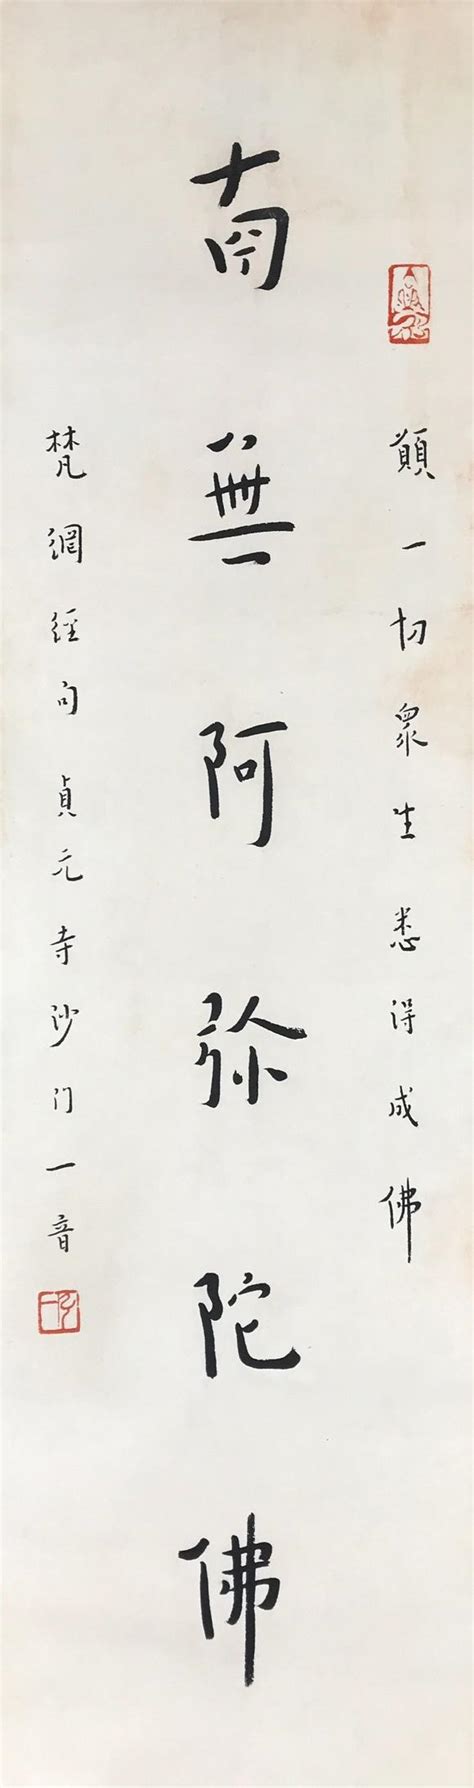 願一切眾生悉得成佛
南無阿弥陀佛
梵網經句貞元寺沙门一音